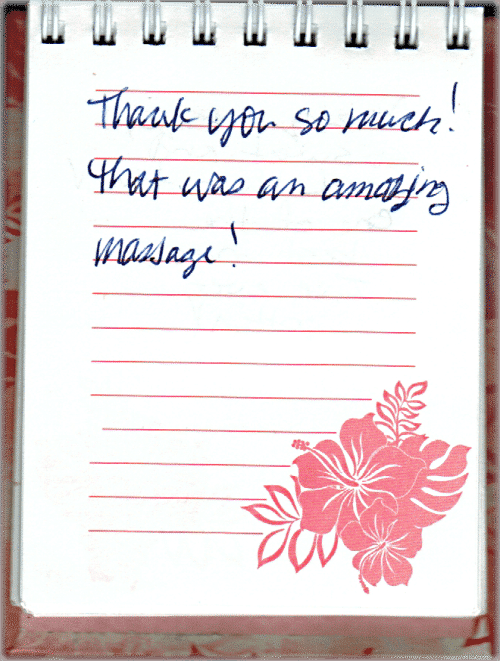 Thank you so much!
That was an amazing
massage!